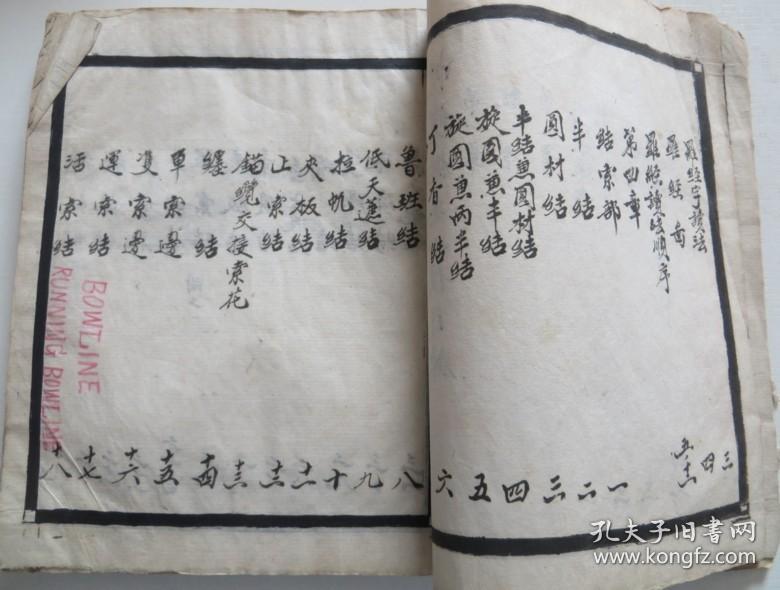 羅經字讀法 三
羅經圖 四
羅經讀法順序 五·六
第四章
結索部
半結 一
圓材結 二
半結兼圓材結 三
旋圓兼半結 四
旋圓兼兩半結 五
丁香結 六
魯班結 八
低天蓬結 九
拉帆結 十
夾板結 十一
止索結 十二
錨纜交接索花 十三
纏結 十四
單索邊 十五
雙索邊 十六
運索結 十七
活索結 十八
BOWLINE
RUNNING BOWLINE
孔夫子旧书网
www.kongfz.com